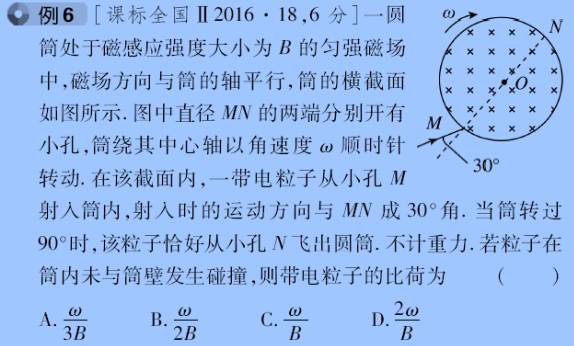 例6 [课标全国Ⅱ2016·18,6分]一圆
筒处于磁感应强度大小为B的匀强磁场
中,磁场方向与筒的轴平行,筒的横截面
如图所示.图中直径MN的两端分别开有
小孔,筒绕其中心轴以角速度ω顺时针
转动.在该截面内,一带电粒子从小孔M
射入筒内,射入时的运动方向与MN成30°角.当筒转过
90°时,该粒子恰好从小孔N飞出圆筒.不计重力.若粒子在
筒内未与筒壁发生碰撞,则带电粒子的比荷为 ( )
A. ω/3B B. ω/2B C. ω/B D. 2ω/B
ω
N
O
M
30°